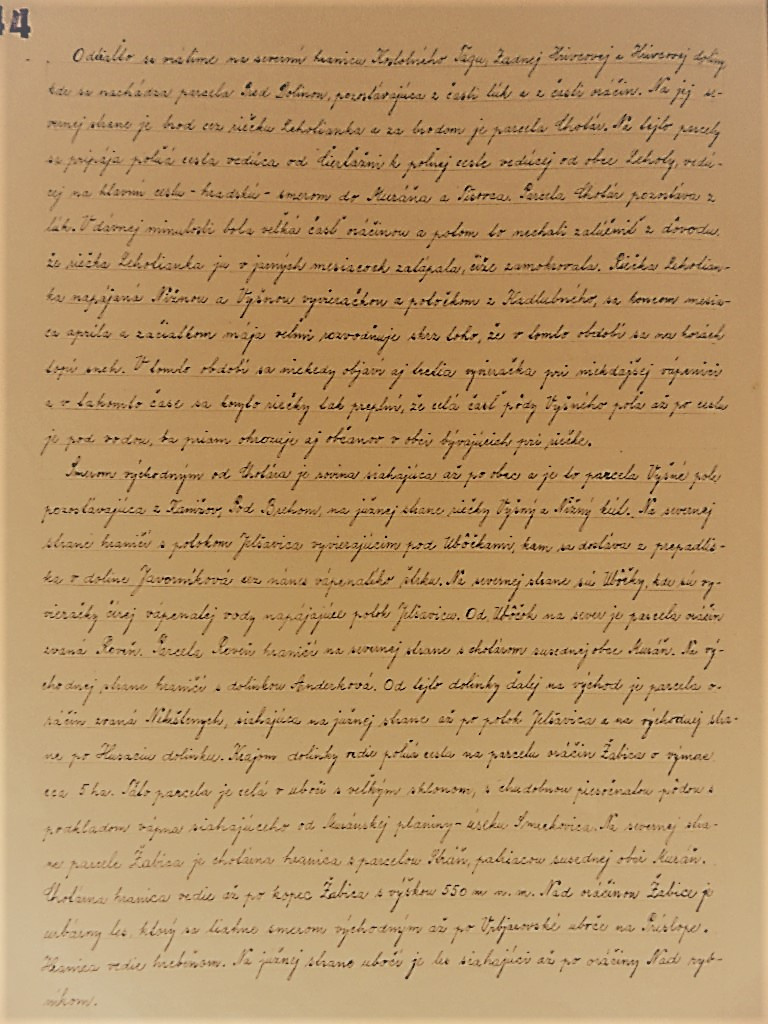 44
Odtiaľto sa vrátime na severnú hranicu Kostolného Tágu, Zadnej Hurcovej a Hurcovej doliny,
kde sa nachádza parcela Pred Dolinou, pozostávajúca z časti lúk a z časti oráčin. Na jej se-
vernej strane je brod cez riečku Leholianka a za brodom je parcela Chotár. Na tejto parcely
sa pripája poľná cesta vedúca od Tiertažni k poľnej ceste vedúcej od obce Lehoty, vedú-
cej na hlavnú cestu - hradskú - smerom do Muráňa a Tisovca. Parcela Chotár pozostáva z
lúk. V dávnej minulosti bola veľká časť oráčinou a potom to nechali zalúčniť z dôvodu,
že riečka Leholianka ju v jarných mesiacoch zatápala, čiže zamokrovala. Riečka Leholian-
ka napájaná Nižnou a Vyšnou vyvieračkou a potôčkom z Kadlubného, sa koncom mesia-
ca apríla a začiatkom mája veľmi rozvodňuje skrz toho, že v tomto období sa na horách
topí sneh. V tomto období sa niekedy objaví aj tretia vyvieračka pri niekdajšej vápenici
a v takomto čase sa koryto riečky tak preplní, že celá časť pôdy Vyšného poľa až po cestu
je pod vodou, ba priam ohrozuje aj občanov v obci bývajúcich pri riečke.
Smerom východným od Chotára je rovina siahajúca až po obec a je to parcela Vyšné pole
pozostávajúca z Kamžov, Pod Brehom, na južnej strane riečky Vyšný a Nižný kút. Na severnej
strane hraničí s potokom Jelšavica vyvierajúcim pod Ubôčkami, kam sa dostáva z prepadlis-
ka v doline Javorníková cez nános vápenatého štrku. Na severnej strane sú Ubôčky, kde sú vy-
vieračky čírej vápenatej vody napájajúce potok Jelšavicu. Od Ubôčok na sever je parcela oráčin
zvaná Roveň. Parcela Roveň hraničí na severnej strane s chotárom susednej obce Muráň. Na vý-
chodnej strane hraničí s dolinkou Anderková. Od tejto dolinky ďalej na východ je parcela o-
ráčin zvaná siahajúca na južnej strane až po potok Jelšavica a na východnej stra-
ne po Husaciu dolinku. Krajom dolinky vedie poľná cesta na parcelu oráčin Žabica o výmere
cca 5 ha. Táto parcela je celá v úbočí s veľkým sklonom, s chudobnou piesočnatou pôdou s
podkladom vápna siahajúceho od Muránskej planiny - úseku Šmrekovica. Na severnej stra-
ne parcele Žabica je chotárna hranica s parcelou Stráň, patriacou susednej obci Muráň.
Chotárna hranica vedie až po kopec Žabica s výškou 550 m n. m. Nad oráčinou Žabice je
urbárny les, ktorý sa tiahne smerom východným až po Vrbjarovské uboče na Príslope.
Hranica vedie hrebeňom. Na južnej strane úbočí je les siahajúci až po oráčiny Nad ryb-
níkom.